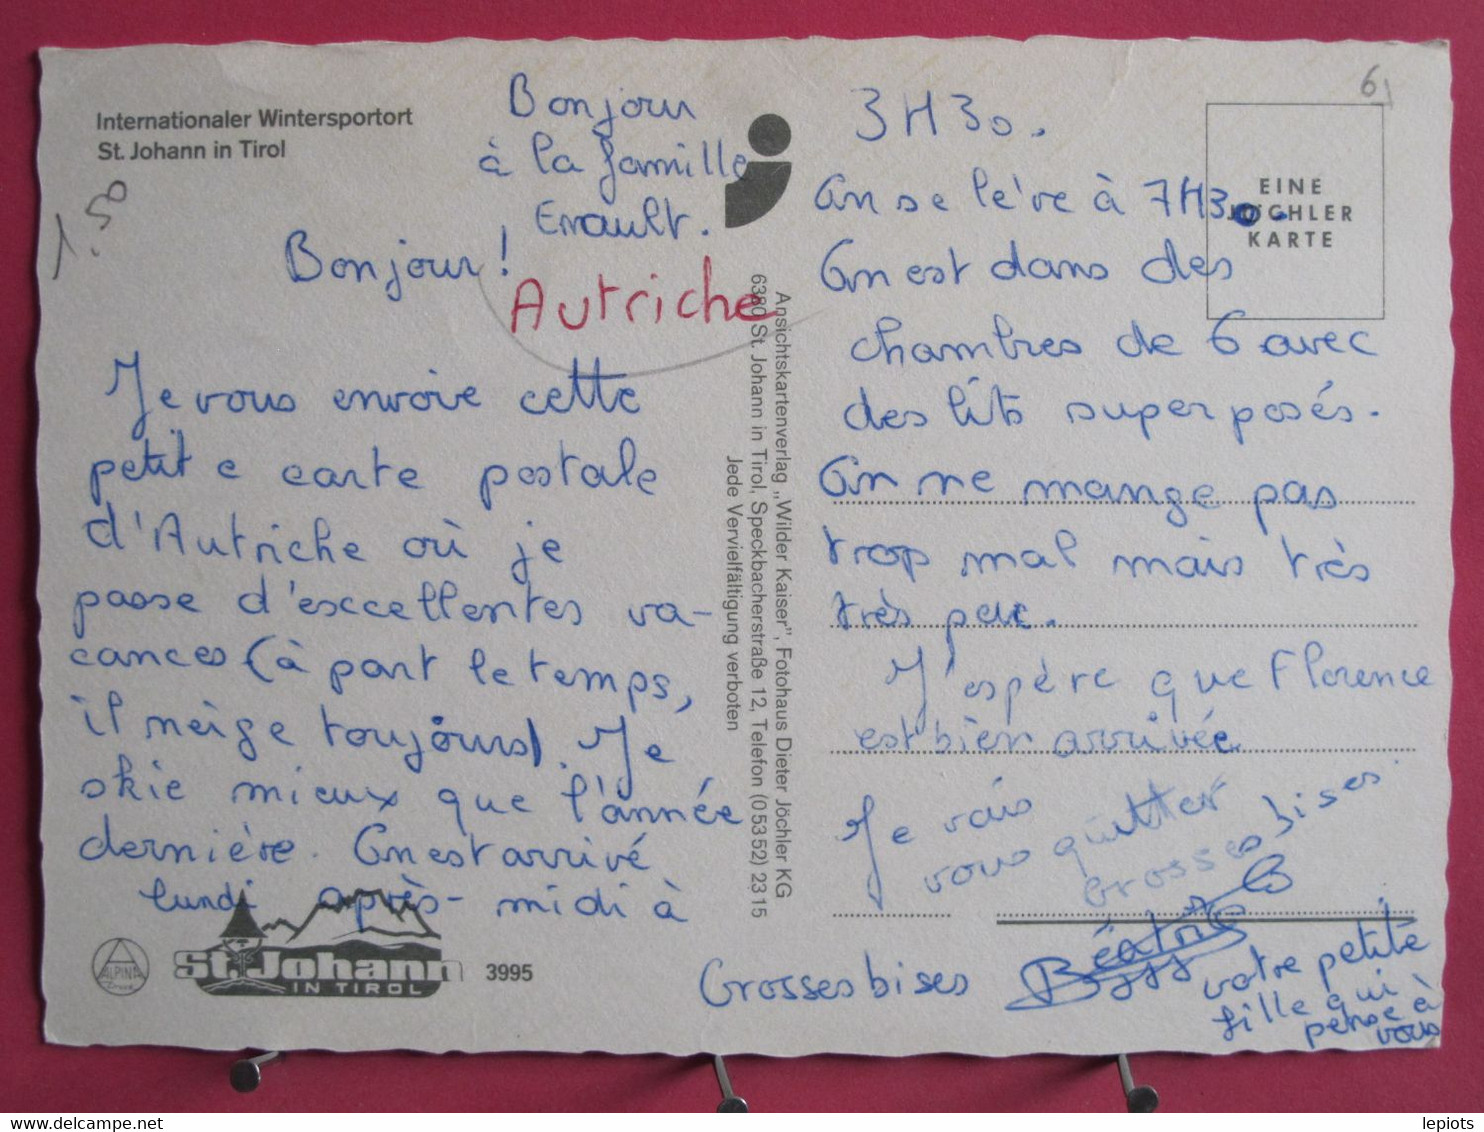 Internationaler Wintersportort
St. Johann in Tirol
1.50
Bonjour
à la famille
Errault.
Bonjour!
Autriche
Je vous envoie cette
petite carte postale
d'Autriche où je
passe d'exccellentes va-
cances (à part le temps,
il neige toujours). Je
skie mieux que l'année
dernière. On est arrivé
lundi après-midi à
ALPINA
St. Johann
IN TIROL
3995
Ansichtskartenverlag „Wilder Kaiser", Fotohaus Dieter Jöchler KG
6380 St. Johann in Tirol, Speckbacherstraße 12, Telefon (05352) 2315
Jede Vervielfältigung verboten
61
EINE
JÖCHLER
KARTE
3H30.
On se lève à 7H30.
On est dans des
chambres de 6 avec
des lits superposés.
On ne mange pas
trop mal mais très
très peu.
J'espère que Florence
est bien arrivée
Je vais
vous quitter
Grosses bises.
Grosses bises
Béatrice
votre petite
fille qui
pense à
vous
lepiots